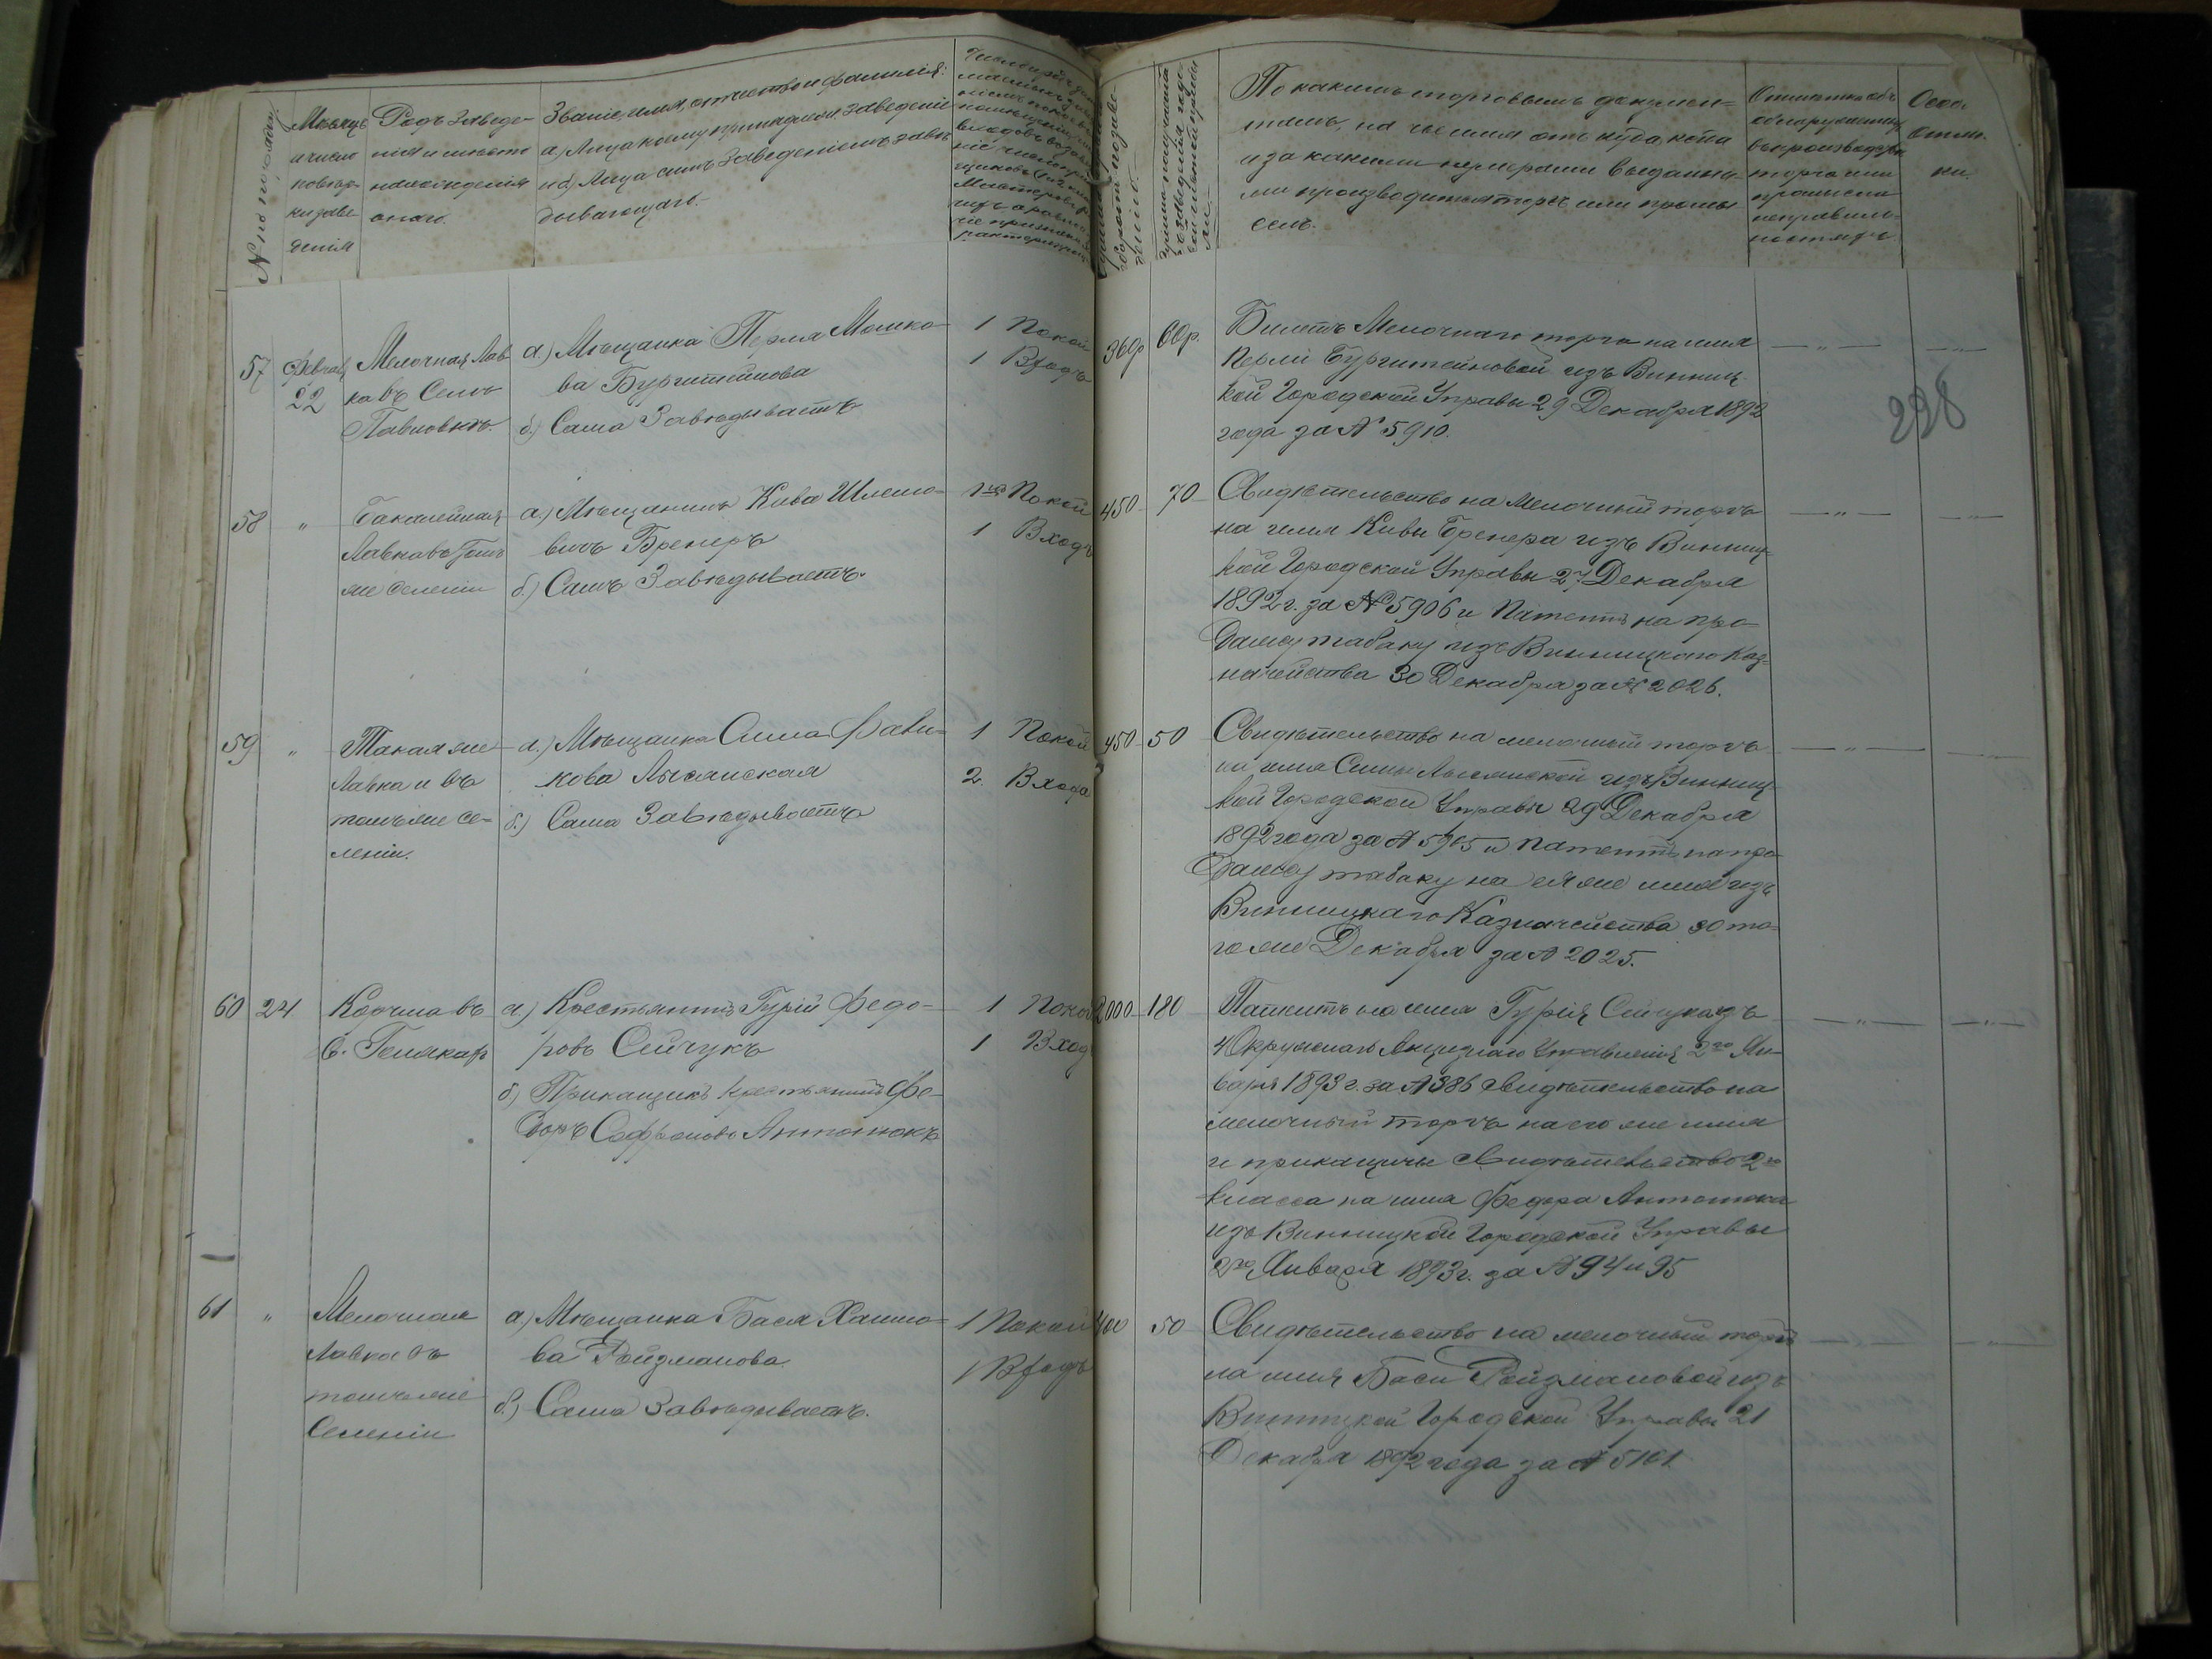 № по порядку.
Мѣсяцъ
и число
повѣр-
ки заве-
денія
Родъ Заведе-
нія и мѣсто
нахожденія
онаго.
Званіе, имя, отчество и фамилія:
а) Лица коему принадлеж. заведеніе
и б) Лица симъ Заведеніемъ завѣ-
дывающаго.
По какимъ торговымъ докумен-
тамъ, на чье имя отъ куда, когда
и за какими нумерами выданны-
ми производится торгъ или промы
селъ.
Отмѣтка объ
обнаруженныхъ
въ производствѣ
торга или
промысла
неправиль-
ностяхъ.
Особ.
отмѣт-
ки.
57
Февраль
22
Мелочная Лав
ка въ Селѣ
Павловкѣ.
а) Мѣщанка Перля Мошко-
ва Бурштейнова
б) Сама Завѣдываетъ
1 Покой
1 Входъ
360р
60р.
Билетъ Мелочнаго торга на имя
Перли Бурштейновой изъ Винниц-
кой Городской Управы 29 Декабря 1892
года за № 5910.
298
58
"
Бакалейная
Лавка въ Томъ
же селеніи
а) Мѣщанинъ Кива Шлемо-
вичъ Бренеръ
б) Самъ Завѣдываетъ.
1 Покой
1 Входъ
450
70
Свидѣтельство на Мелочный торгъ
на имя Кивы Бренера изъ Винниц-
кой Городской Управы 27 Декабря
1892 г. за № 5906 и Патентъ на про-
дажу табаку изъ Винницкаго Каз-
начейства 30 Декабря за № 2026.
59
"
Такая же
Лавка и въ
томъ же се-
леніи.
а) Мѣщанка Сима
кова Лысянская
б) Сама Завѣдываетъ
1 Покой
2 Входа
450
50
Свидѣтельство на мелочный торгъ
на имя Симы Лысянской изъ Винниц-
кой Городской Управы 29 Декабря
1892 года за № 5905 и патентъ на про-
дажу табаку на ея же имя изъ
Винницкаго Казначейства 30 то-
го же Декабря за № 2025.
60
24
Корчма въ
с.
а) Крестьянинъ Гурій Федо-
ровъ Сейчукъ
б) Прикащикъ крестьянинъ Фе-
доръ Софроновъ Антонюкъ
1 Покой
1 Вход
2000
180
Патентъ на имя Гурія Сейчука изъ
4 Окружнаго Акцизнаго Управленія 2го Ян-
варя 1893 г. за № 386 свидѣтельство на
мелочный торгъ на его же имя
и прикащичье свидѣтельство 2го
класса на имя Федора Антонюка
изъ Винницкой Городской Управы
2го Января 1893 г. за № 94 и 95
61
"
Мелочная
Лавка въ
томъ же
Селеніи
а) Мѣщанка Бася Хаимо-
ва Ройзманова
б) Сама Завѣдываетъ.
1 Покой
1 Входъ
400
50
Свидѣтельство на мелочный торгъ
на имя Баси Ройзмановой изъ
Винницкой Городской Управы 21
Декабря 1892 года за № 5101